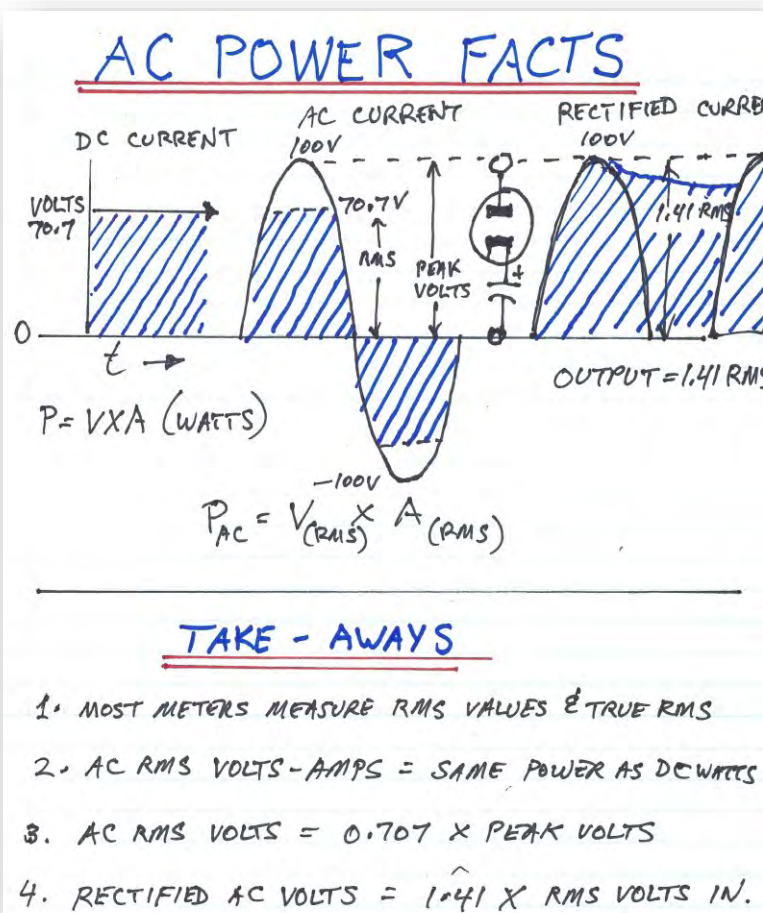 AC POWER FACTS
DC CURRENT
VOLTS
70.7
0
t →
P = V X A (WATTS)
AC CURRENT
100V
70.7V
RMS
PEAK
VOLTS
-100V
+
RECTIFIED CURRE
100V
1.41 RMS
OUTPUT = 1.41 RMS
PAC = V(RMS) X A(RMS)
TAKE - AWAYS
1. MOST METERS MEASURE RMS VALUES & TRUE RMS
2. AC RMS VOLTS-AMPS = SAME POWER AS DC WATTS
3. AC RMS VOLTS = 0.707 X PEAK VOLTS
4. RECTIFIED AC VOLTS = 1.41 X RMS VOLTS IN.